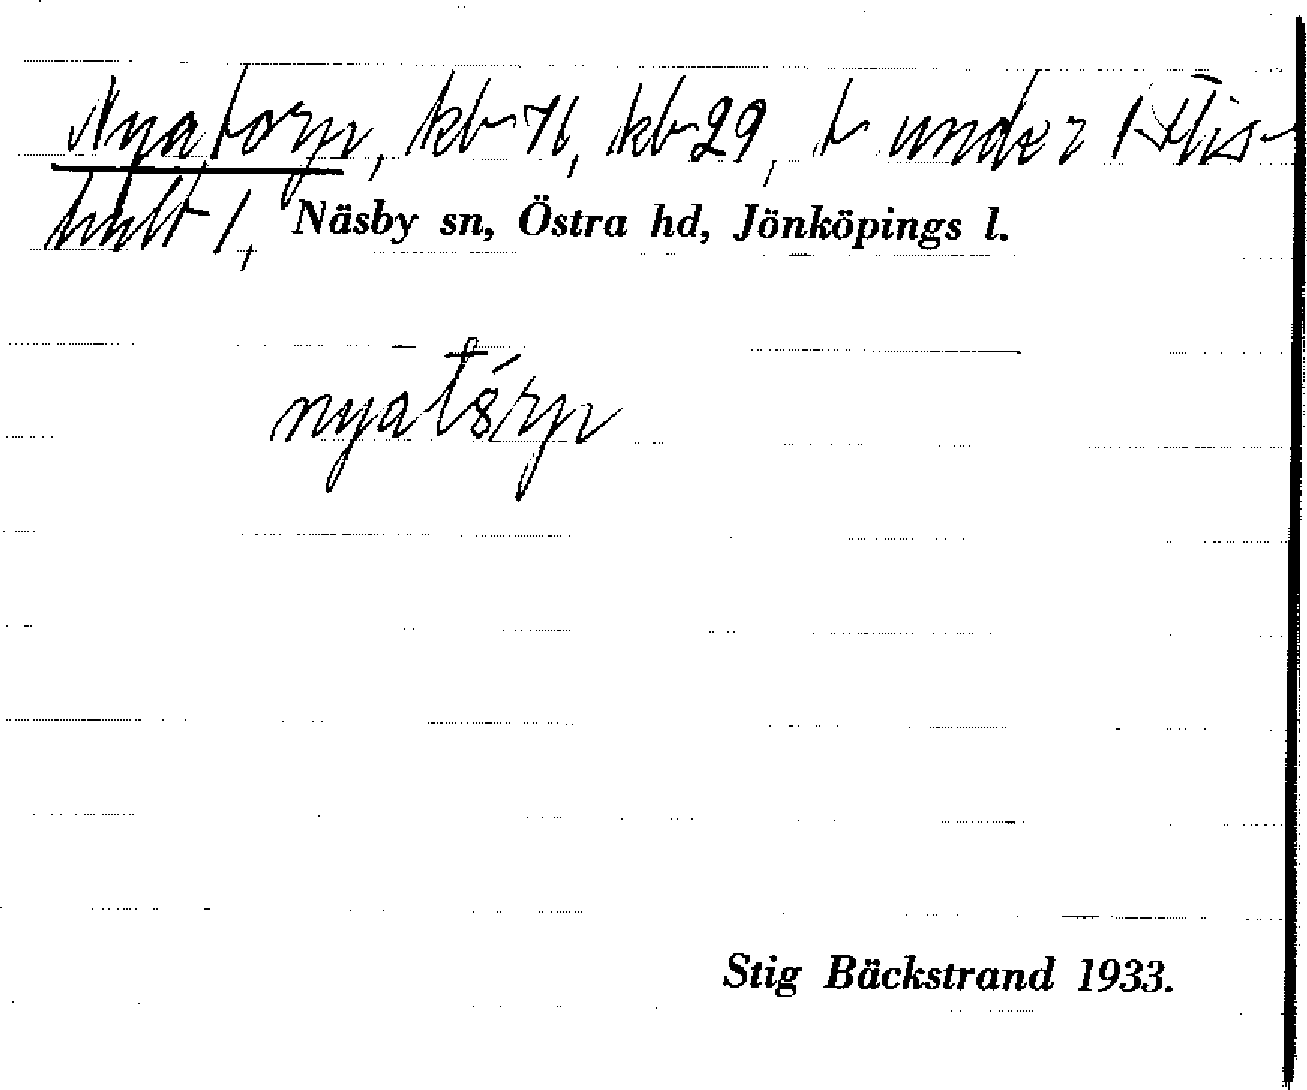 Nyatorp, kb 71, kb 29, t under Klis-
hult 1, Näsby sn, Östra hd, Jönköpings l.
nyatórp
Stig Bäckstrand 1933.